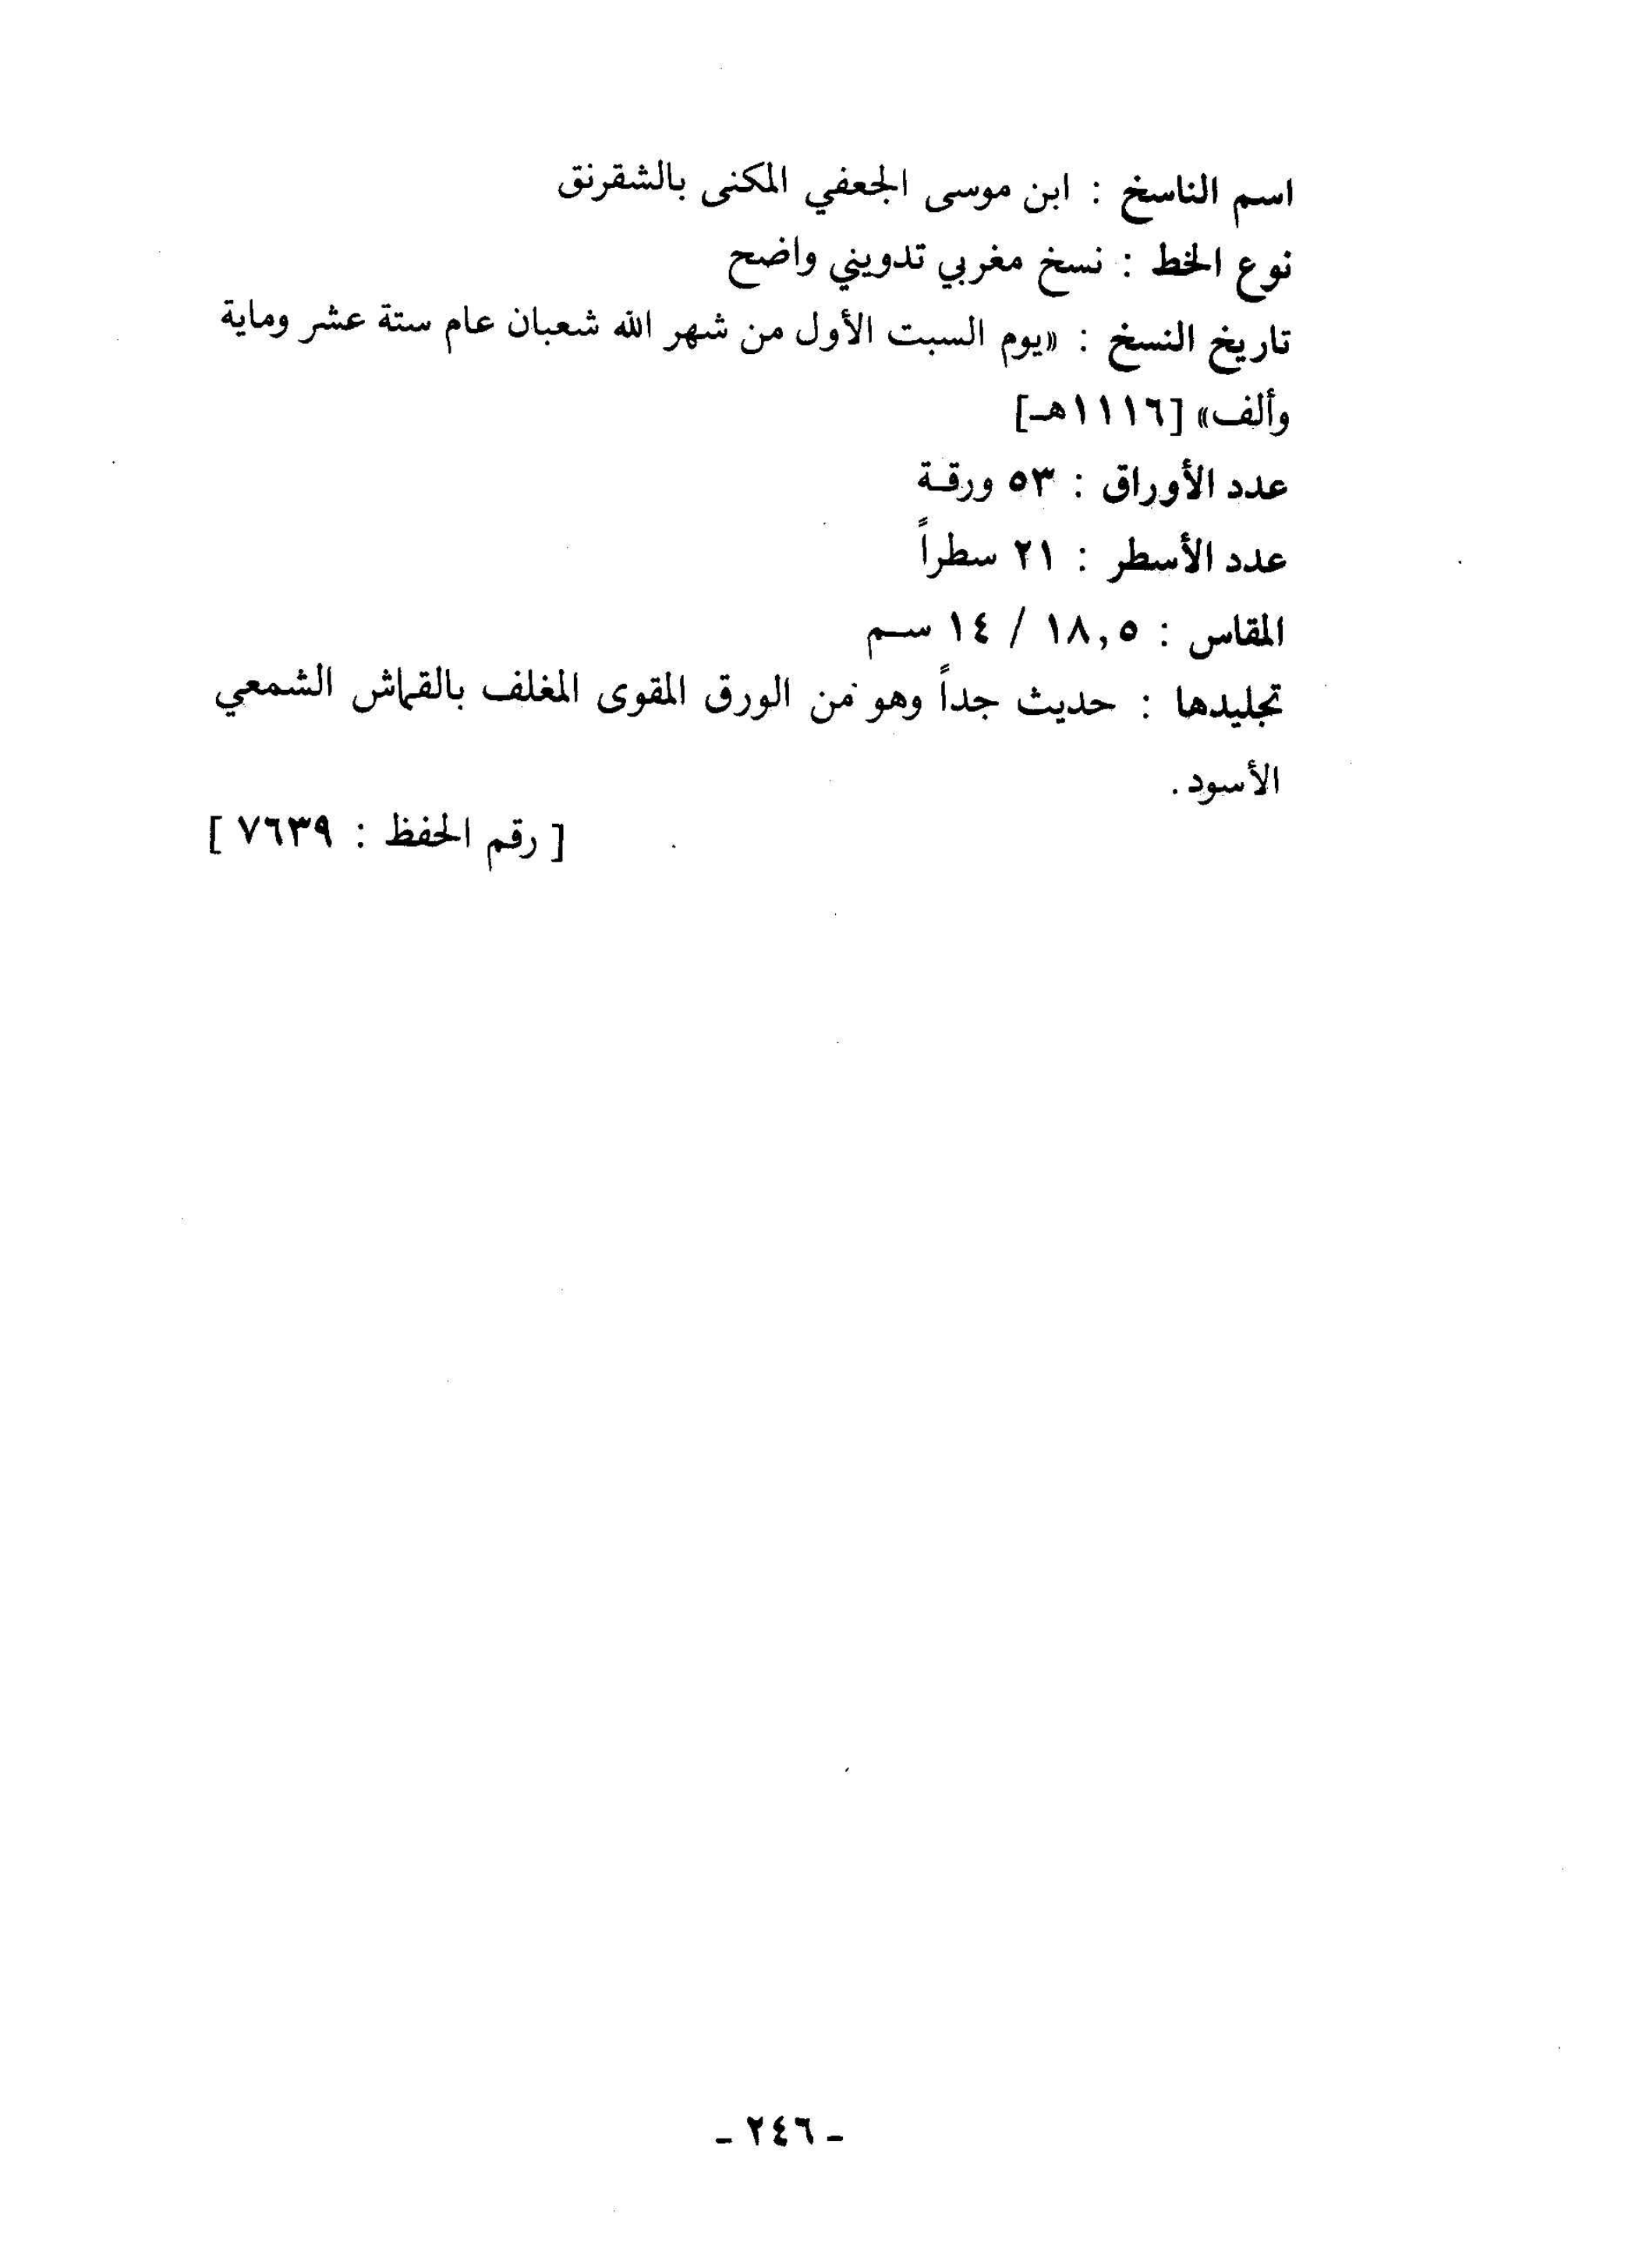 اسم الناسخ : ابن موسى الجعفي المكنى بالشقرنق
نوع الخط : نسخ مغربي تدويني واضح
تاريخ النسخ : «يوم السبت الأول من شهر الله شعبان عام ستة عشر وماية
وألف» [١١١٦هـ]
عدد الأوراق : ٥٣ ورقة
عدد الأسطر : ٢١ سطراً
المقاس : ١٨,٥ / ١٤ سم
تجليدها : حديث جداً وهو من الورق المقوى المغلف بالقماش الشمعي
الأسود .
[ رقم الحفظ : ٧٦٣٩ ]
- ٢٤٦ -